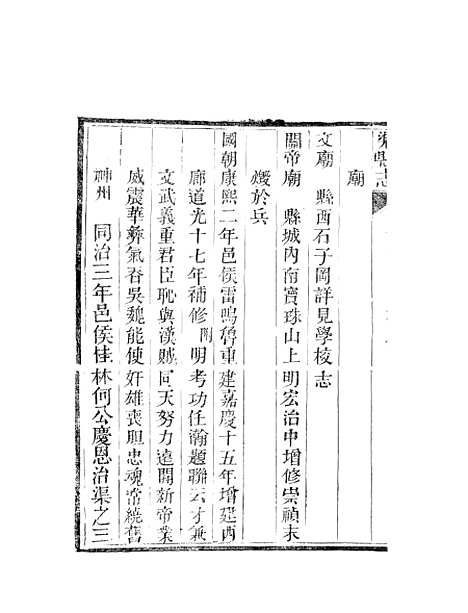 渠縣志
廟
文廟　縣西石子岡詳見學校志
關帝廟　縣城內南寶珠山上明宏治中增修崇禎末
燬於兵
國朝康熙二年邑侯雷鳴魯重建嘉慶十五年增建西
廊道光十七年補修 附 明考功任瀚題聯云才兼
文武義重君臣耻與漢賊同天努力遠開新帝業
威震華彝氣吞吳魏能使奸雄喪胆忠魂常繞舊
神州　同治三年邑侯桂林何公慶恩治渠之三